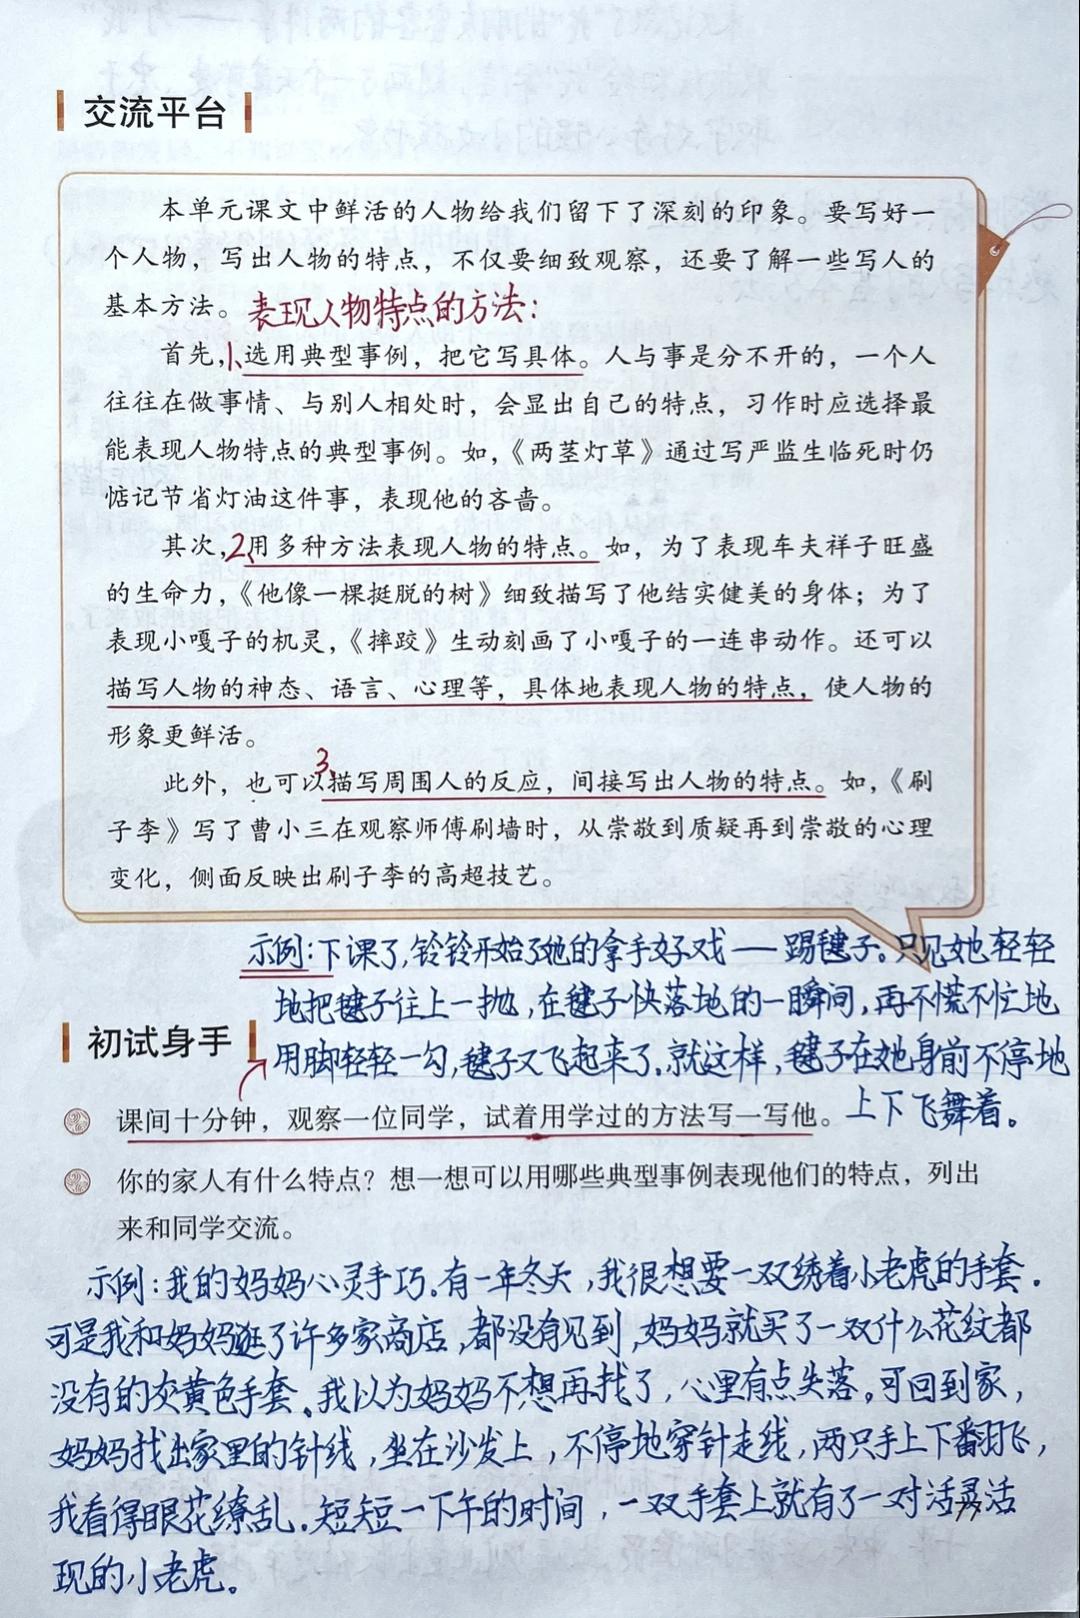 交流平台
本单元课文中鲜活的人物给我们留下了深刻的印象。要写好一
个人物，写出人物的特点，不仅要细致观察，还要了解一些写人的
基本方法。表现人物特点的方法：
首先，1、选用典型事例，把它写具体。人与事是分不开的，一个人
往往在做事情、与别人相处时，会显出自己的特点，习作时应选择最
能表现人物特点的典型事例。如，《两茎灯草》通过写严监生临死时仍
惦记节省灯油这件事，表现他的吝啬。
其次，2、用多种方法表现人物的特点。如，为了表现车夫祥子旺盛
的生命力，《他像一棵挺脱的树》细致描写了他结实健美的身体；为了
表现小嘎子的机灵，《摔跤》生动刻画了小嘎子的一连串动作。还可以
描写人物的神态、语言、心理等，具体地表现人物的特点，使人物的
形象更鲜活。
此外，也可以3、描写周围人的反应，间接写出人物的特点。如，《刷
子李》写了曹小三在观察师傅刷墙时，从崇敬到质疑再到崇敬的心理
变化，侧面反映出刷子李的高超技艺。
示例：下课了，铃铃开始了她的拿手好戏——踢毽子。只见她轻轻
地把毽子往上一抛，在毽子快落地的一瞬间，再不慌不忙地
用脚轻轻一勾，毽子又飞起来了。就这样，毽子在她身前不停地
上下飞舞着。
初试身手
课间十分钟，观察一位同学，试着用学过的方法写一写他。
你的家人有什么特点？想一想可以用哪些典型事例表现他们的特点，列出
来和同学交流。
示例：我的妈妈心灵手巧。有一年冬天，我很想要一双绣着小老虎的手套。
可是我和妈妈逛了许多家商店，都没有见到，妈妈就买了一双什么花纹都
没有的灰黄色手套。我以为妈妈不想再找了，心里有点失落。可回到家，
妈妈找出家里的针线，坐在沙发上，不停地穿针走线，两只手上下翻飞，
我看得眼花缭乱。短短一下午的时间，一双手套上就有了一对活灵活
现的小老虎。